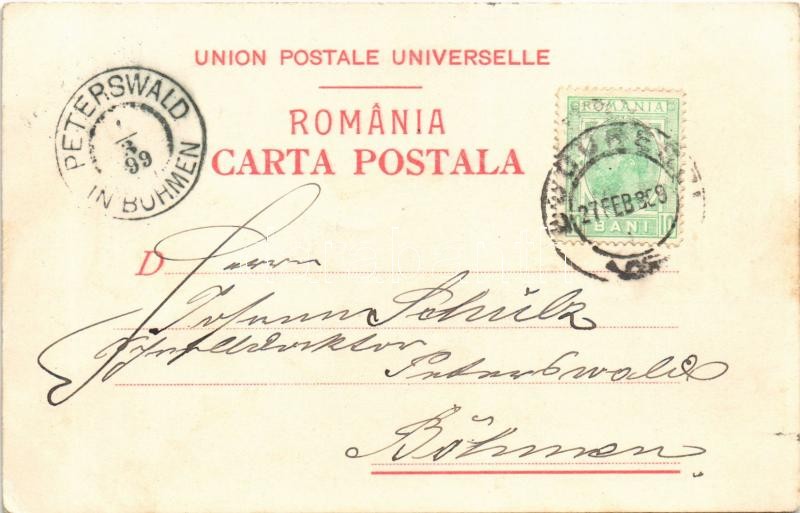 UNION POSTALE UNIVERSELLE
ROMÂNIA
CARTA POSTALA
PETERSWALD
IN BÖHMEN
1/3 99
ROMANIA
BANI 10
BUCURESCI
27 FEB
D
Herrn
Johann Schülz
Peterswald
Böhmen